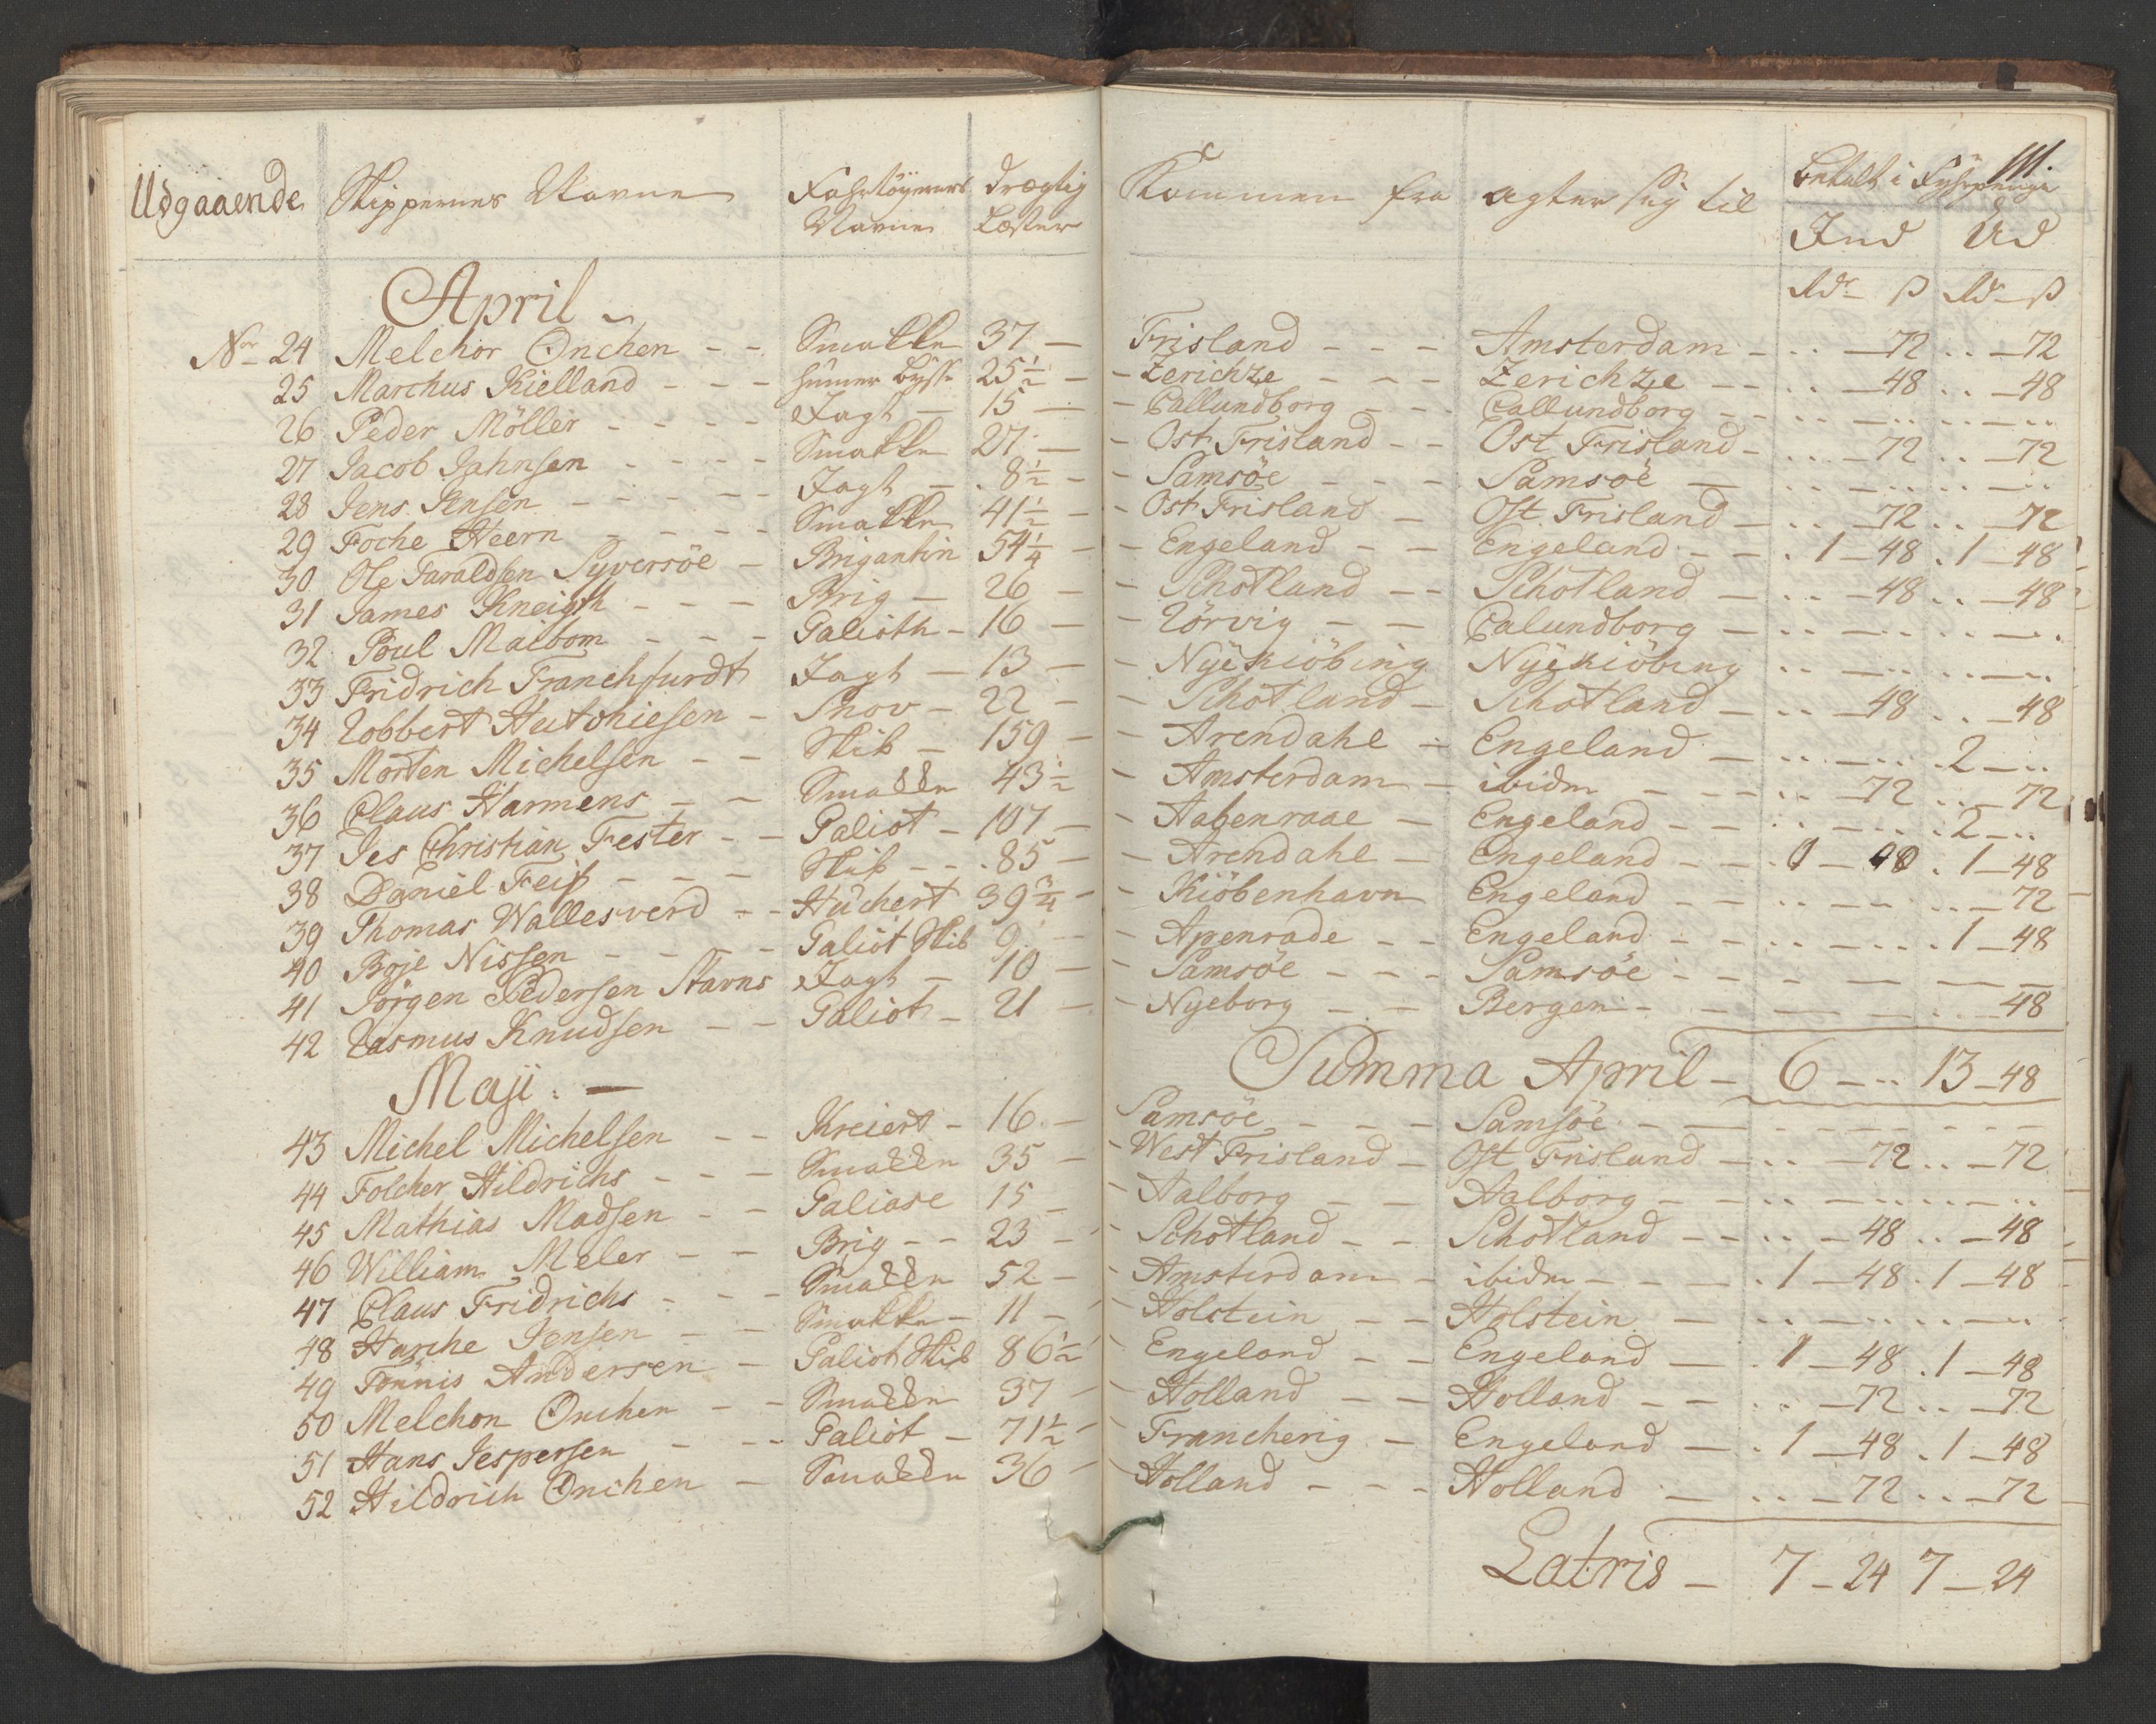 111.
Udgaaende Skippernes Navne Fahrtöyernes Navne Drægtig Læster Kommen fra agter sig til betalt i Fyhrpenge
Ind Ud
Rdr ß Rdr ß
April
Nr 24 Melchor Onchen - - Smakke 37 — Frisland - - - Amsterdam - .. — 72 .. — 72
25 Marchus Kielland - - - hummer Bysse 25 1/2 - - Zerichze - - - Zerichze - - .. — 48 .. — 48
26 Peder Möller - - - - Jagt — 15 — - Callundborg - - Callundborg - - .. — .. .. — ..
27 Jacob Jahnsen - - - - Smakke 27 — - Ost Frisland - - Ost Frisland - .. — 72 .. — 72
28 Jens Jensen - - - - - Jagt — . 8 1/2 - - Samsöe - - - Samsöe — .. — .. .. — ..
29 Foche Heern - - - - Smakke 41 1/2 - - Ost Frisland — Ost Frisland - .. — 72 .. — 72
30 Ole Taraldsen Syversöe - Brigantin 54 1/4 - - Engeland - - Engeland - - . 1 — 48 . 1 — 48
31 James Kneigth - - - Brig — 26 - - Schotland - - Schotland - .. — 48 .. — 48
32 Poul Maibom - - - Galioth - 16 - - Rörvig - - Calundborg - .. — .. .. — ..
33 Fridrich Franchfurdt Jagt — 13 — - Nyekiöbing Nyekiöbing .. — .. .. — ..
34 Robbert Hutchiesen - Snov - 22 - - Schotland - Schotland - .. — 48 .. — 48
35 Morten Michelsen - - Skib — 159 - - Arendahl - Engeland - .. — .. . 2 — ..
36 Claus Harmens - - Smakke 43 1/2 - Amsterdam - ibidm - - - .. — 72 .. — 72
37 Jes Christian Fester - - Galiot - 107 - - Aabenraae - Engeland - - .. — .. . 2 — ..
38 Daniel Feiß - - - Skib - - . 85 - - Arendahl - Engeland - - . 1 — 48 . 1 — 48
39 Thomas Wallesverd - - Huchert 39 3/4 - - Kiöbenhavn Engeland - - .. — .. .. — 72
40 Boje Nissen - - - - Galiot Skib 9. - - - Apenrade - - Engeland - - .. — .. . 1 — 48
41 Jörgen Pedersen Stavns Jagt — 10 - - Samsöe - - - Samsöe - - - — — —
42 Rasmus Knudsen - - Galiot - 21 - - Nyeborg - - Bergen - - — — .. — 48
Summa April — 6 — .. 13 — 48
Maji: —
43 Michel Michelsen - - Kreiert - 16. - Samsöe - - - Samsöe - - - - - - -
44 Folcher Hildrichs - - - Smakke 35 - - West Frisland - Ost Frisland - .. — 72 .. — 72
45 Mathias Madsen - - Galiase 15 - - Aalborg - - Aalborg - - .. — .. .. — ..
46 William Meler - - Brig - - 23 - - Schotland - - Schotland - - .. — 48 .. — 48
47 Claus Fridrichs - - - Smakke 52 - - Amsterdam - ibidm - - - . 1 — 48 . 1 — 48
48 Harche Jensen - - Smakke - 11 - - Holstein - - Holstein - .. — .. .. — ..
49 Tönnis Andersen - Galiot Skib 86 1/2 - Engeland - - Engeland - . 1 — 48 . 1 — 48
50 Melchon Onchen - - Smakke 37 - - Holland - - Holland - - .. — 72 .. — 72
51 Hans Jespersen - - - Galiot - 71 1/2 - Francherig - Engeland - . 1 — 48 . 1 — 48
52 Hildrich Onchen - Smakke 36 - Holland - - - Holland - .. — 72 .. — 72
Latris — 7 — 24 7 — 24